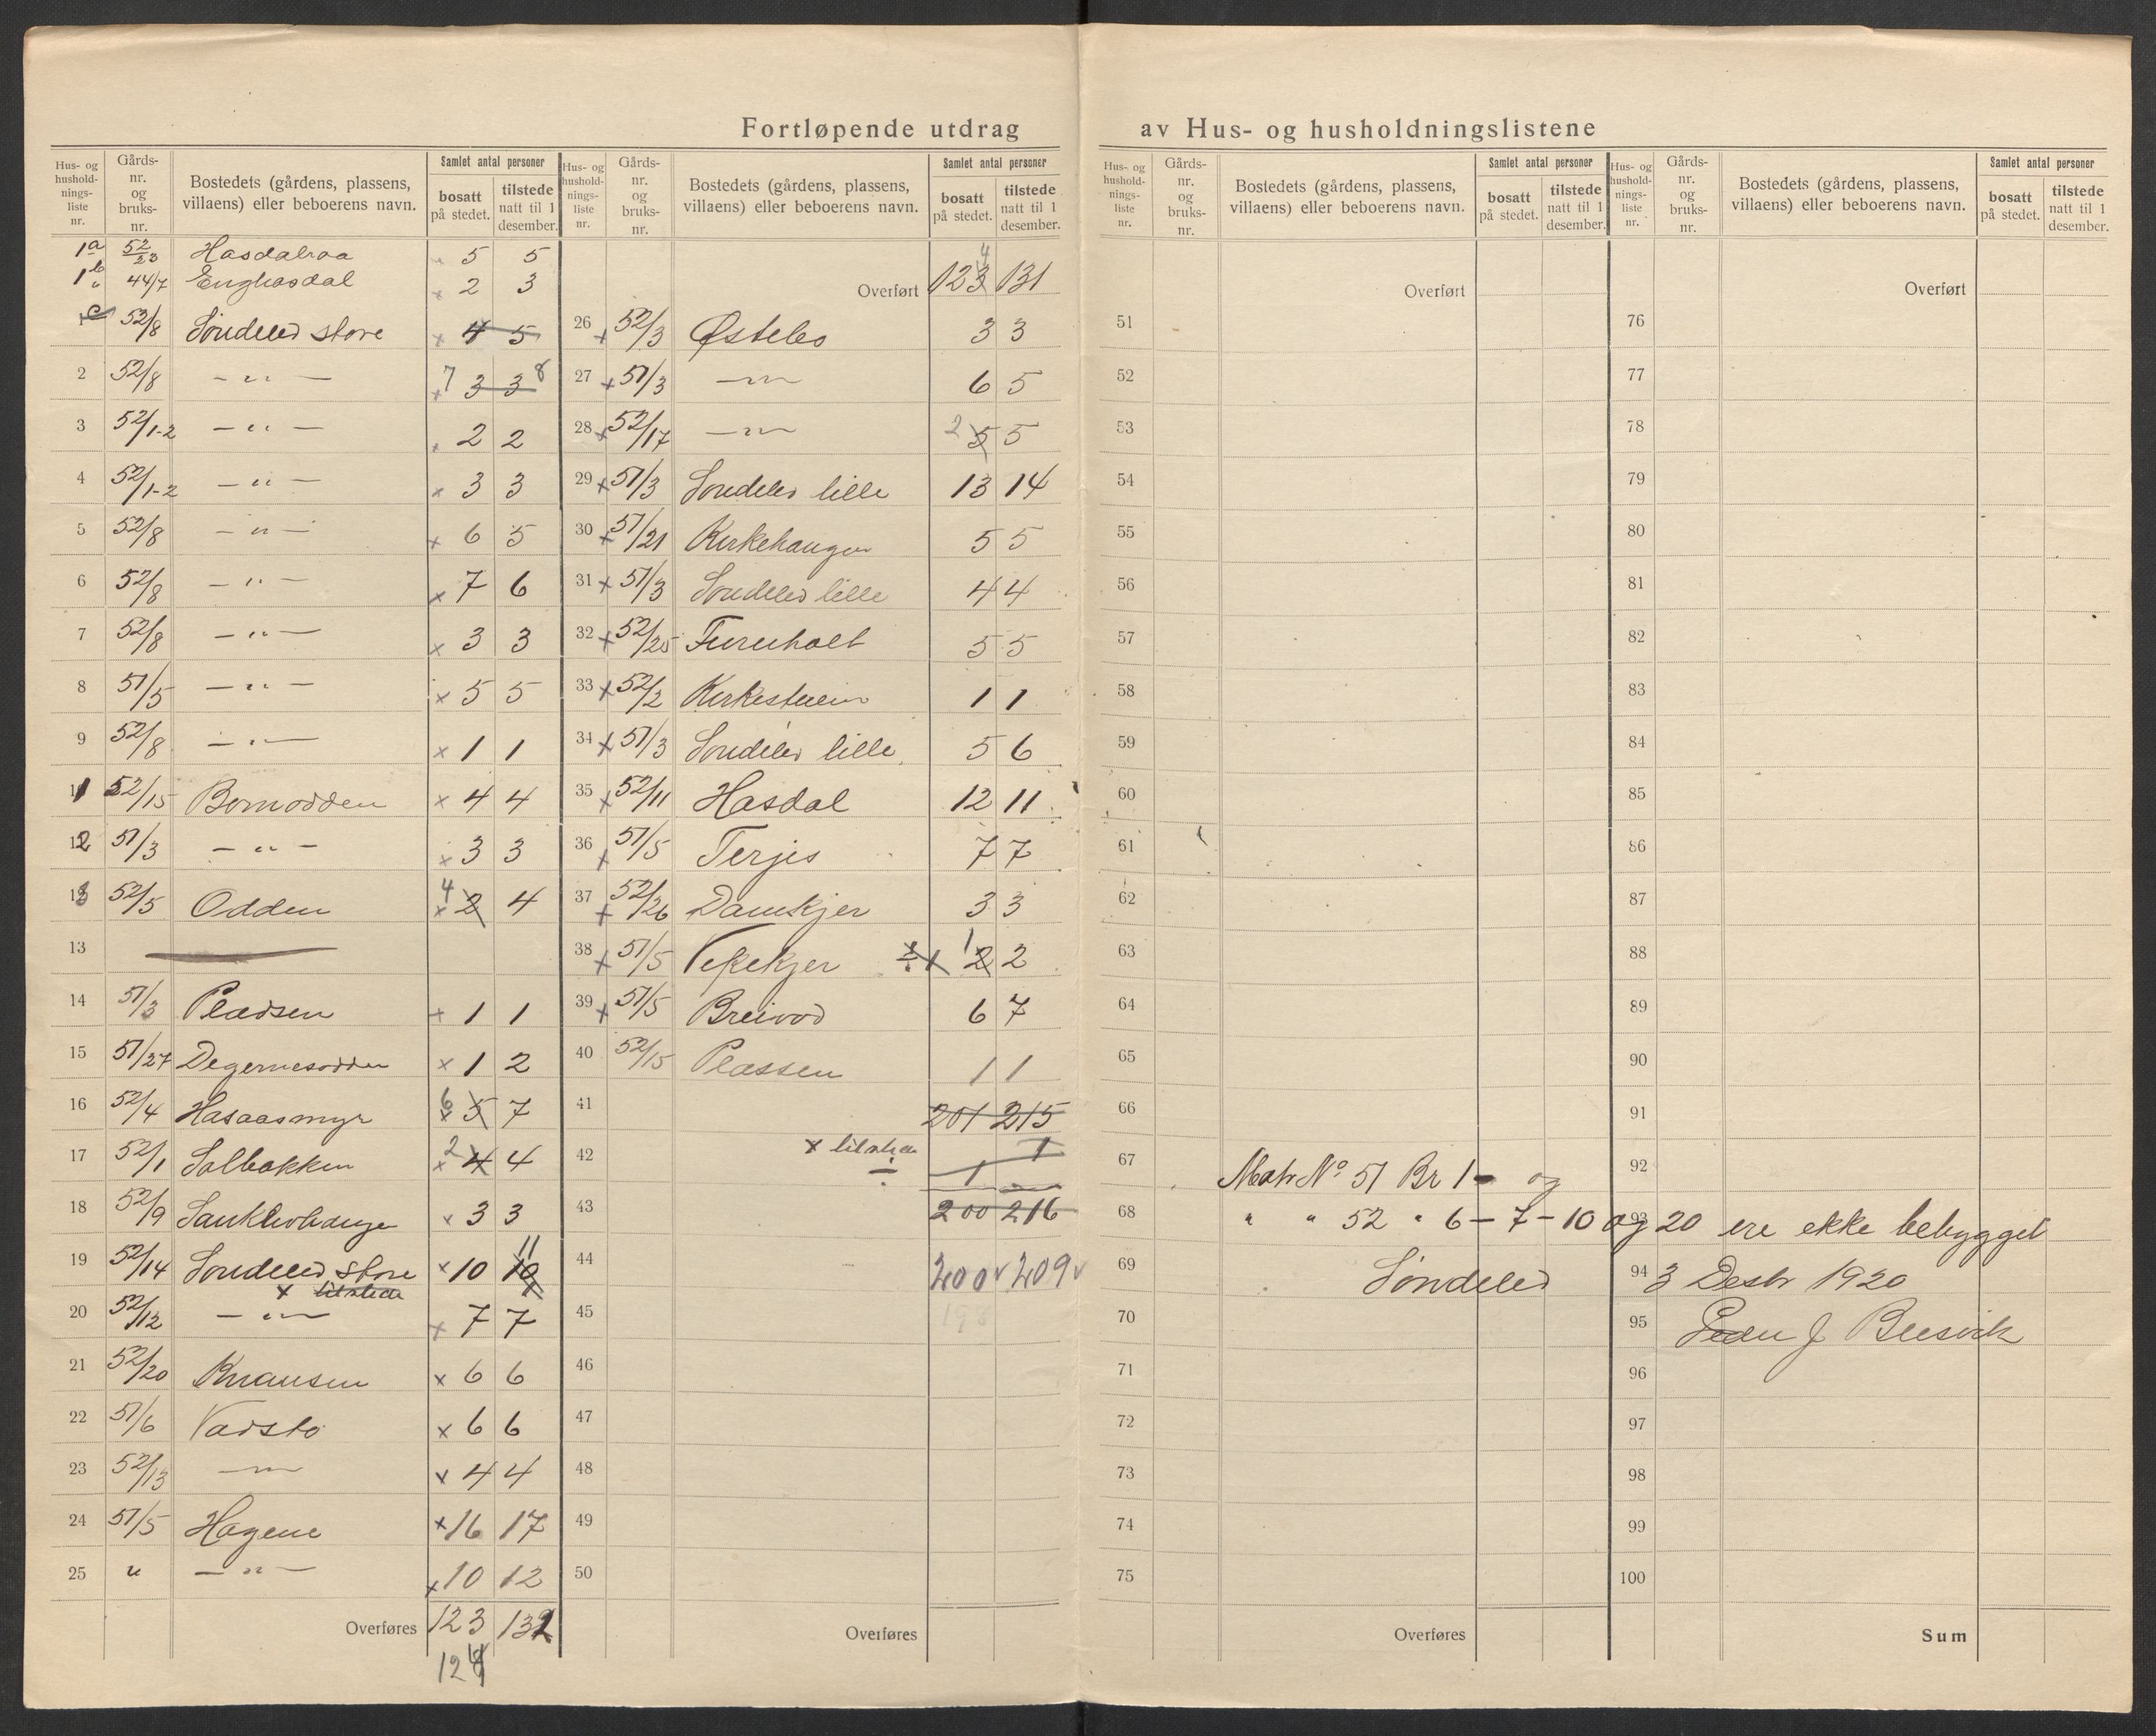 Fortløpende utdrag av Hus- og husholdningslistene
Hus- og husholdnings-liste nr. Gårds-nr. og bruks-nr. Bostedets (gårdens, plassens, villaens) eller beboerens navn. Samlet antal personer bosatt på stedet. tilstede natt til 1 desember.
1a 52/23 Hasdalraa 5 5
1b 44/7 Enghasdal 2 3
1c 52/8 Søndeled store 4 5
2 52/8 — " — 7 3 3 8
3 52/1-2 — " — 2 2
4 52/1-2 — " — 3 3
5 52/8 — " — 6 5
6 52/8 — " — 7 6
7 52/8 — " — 3 3
8 51/5 — " — 5 5
9 52/8 — " — 1 1
11 52/15 Bomodden 4 4
12 51/3 — " — 3 3
13 52/5 Odden 4 2 4
13
14 51/3 Pladsen 1 1
15 51/27 Degernesodden 1 2
16 52/4 Hasaasmyr 6 5 7
17 52/1 Solbakken 2 4 4
18 52/9 3 3
19 52/14 Søndeled store 10 10 11
x tilstede
20 52/12 — " — 7 7
21 52/20 Knausen 6 6
22 51/6 Vadstø 6 6
23 52/13 — " — 4 4
24 51/5 Hagene 16 17
25 " — " — 10 12
Overføres 123 132
124
Hus- og husholdnings-liste nr. Gårds-nr. og bruks-nr. Bostedets (gårdens, plassens, villaens) eller beboerens navn. Samlet antal personer bosatt på stedet. tilstede natt til 1 desember.
Overført 123 4 131
26 52/3 Østebø 3 3
27 51/3 — " — 6 5
28 52/17 — " — 2 5 5
29 51/3 Søndeled lille 13 14
30 51/21 Kirkehaugen 5 5
31 51/3 Søndeled lille 4 4
32 52/25 Furuholt 5 5
33 52/2 5 1 1
34 51/3 Søndeled lille 5 6
35 52/11 Hasdal 12 11
36 51/5 Terjes 7 7
37 52/26 Damkjer 3 3
38 51/5 1 2 2
39 51/5 Breivod 6 7
40 52/15 Plassen 1 1
41 201 215
42 x tilstede 1
÷ 1
43 200 216
44 200 209
45 198
46
47
48
49
50
Overføres
Hus- og husholdnings-liste nr. Gårds-nr. og bruks-nr. Bostedets (gårdens, plassens, villaens) eller beboerens navn. Samlet antal personer bosatt på stedet. tilstede natt til 1 desember.
Overført
51
52
53
54
55
56
57
58
59
60
61
62
63
64
65
66
67
68
69
70
71
72
73
74
75
Overføres
Hus- og husholdnings-liste nr. Gårds-nr. og bruks-nr. Bostedets (gårdens, plassens, villaens) eller beboerens navn. Samlet antal personer bosatt på stedet. tilstede natt til 1 desember.
Overført
76
77
78
79
80
81
82
83
84
85
86
87
88
89
90
91
92
93
94
95
96
97
98
99
100
Sum
Matr No 51 Br 1 - og
" " 52 " 6 - 7 - 10 og 20 ere ekke bebygget
Søndeled 3 Desbr 1920
J